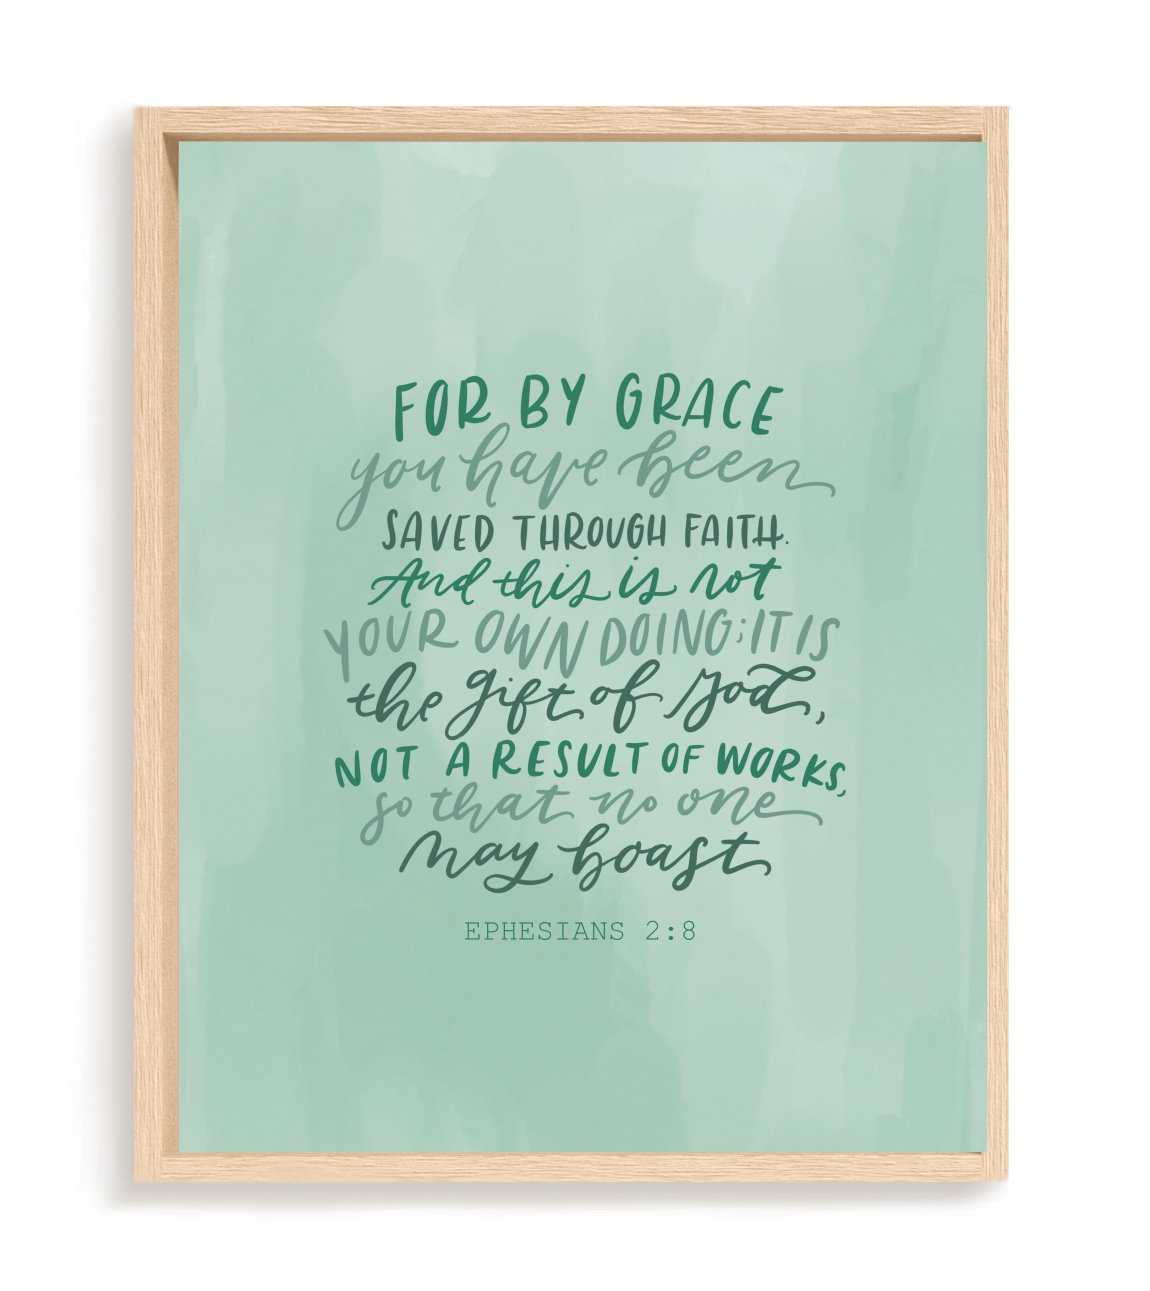 FOR BY GRACE
you have been
SAVED THROUGH FAITH.
And this is not
YOUR OWN DOING; IT IS
the gift of God,
NOT A RESULT OF WORKS,
so that no one
may boast
EPHESIANS 2:8